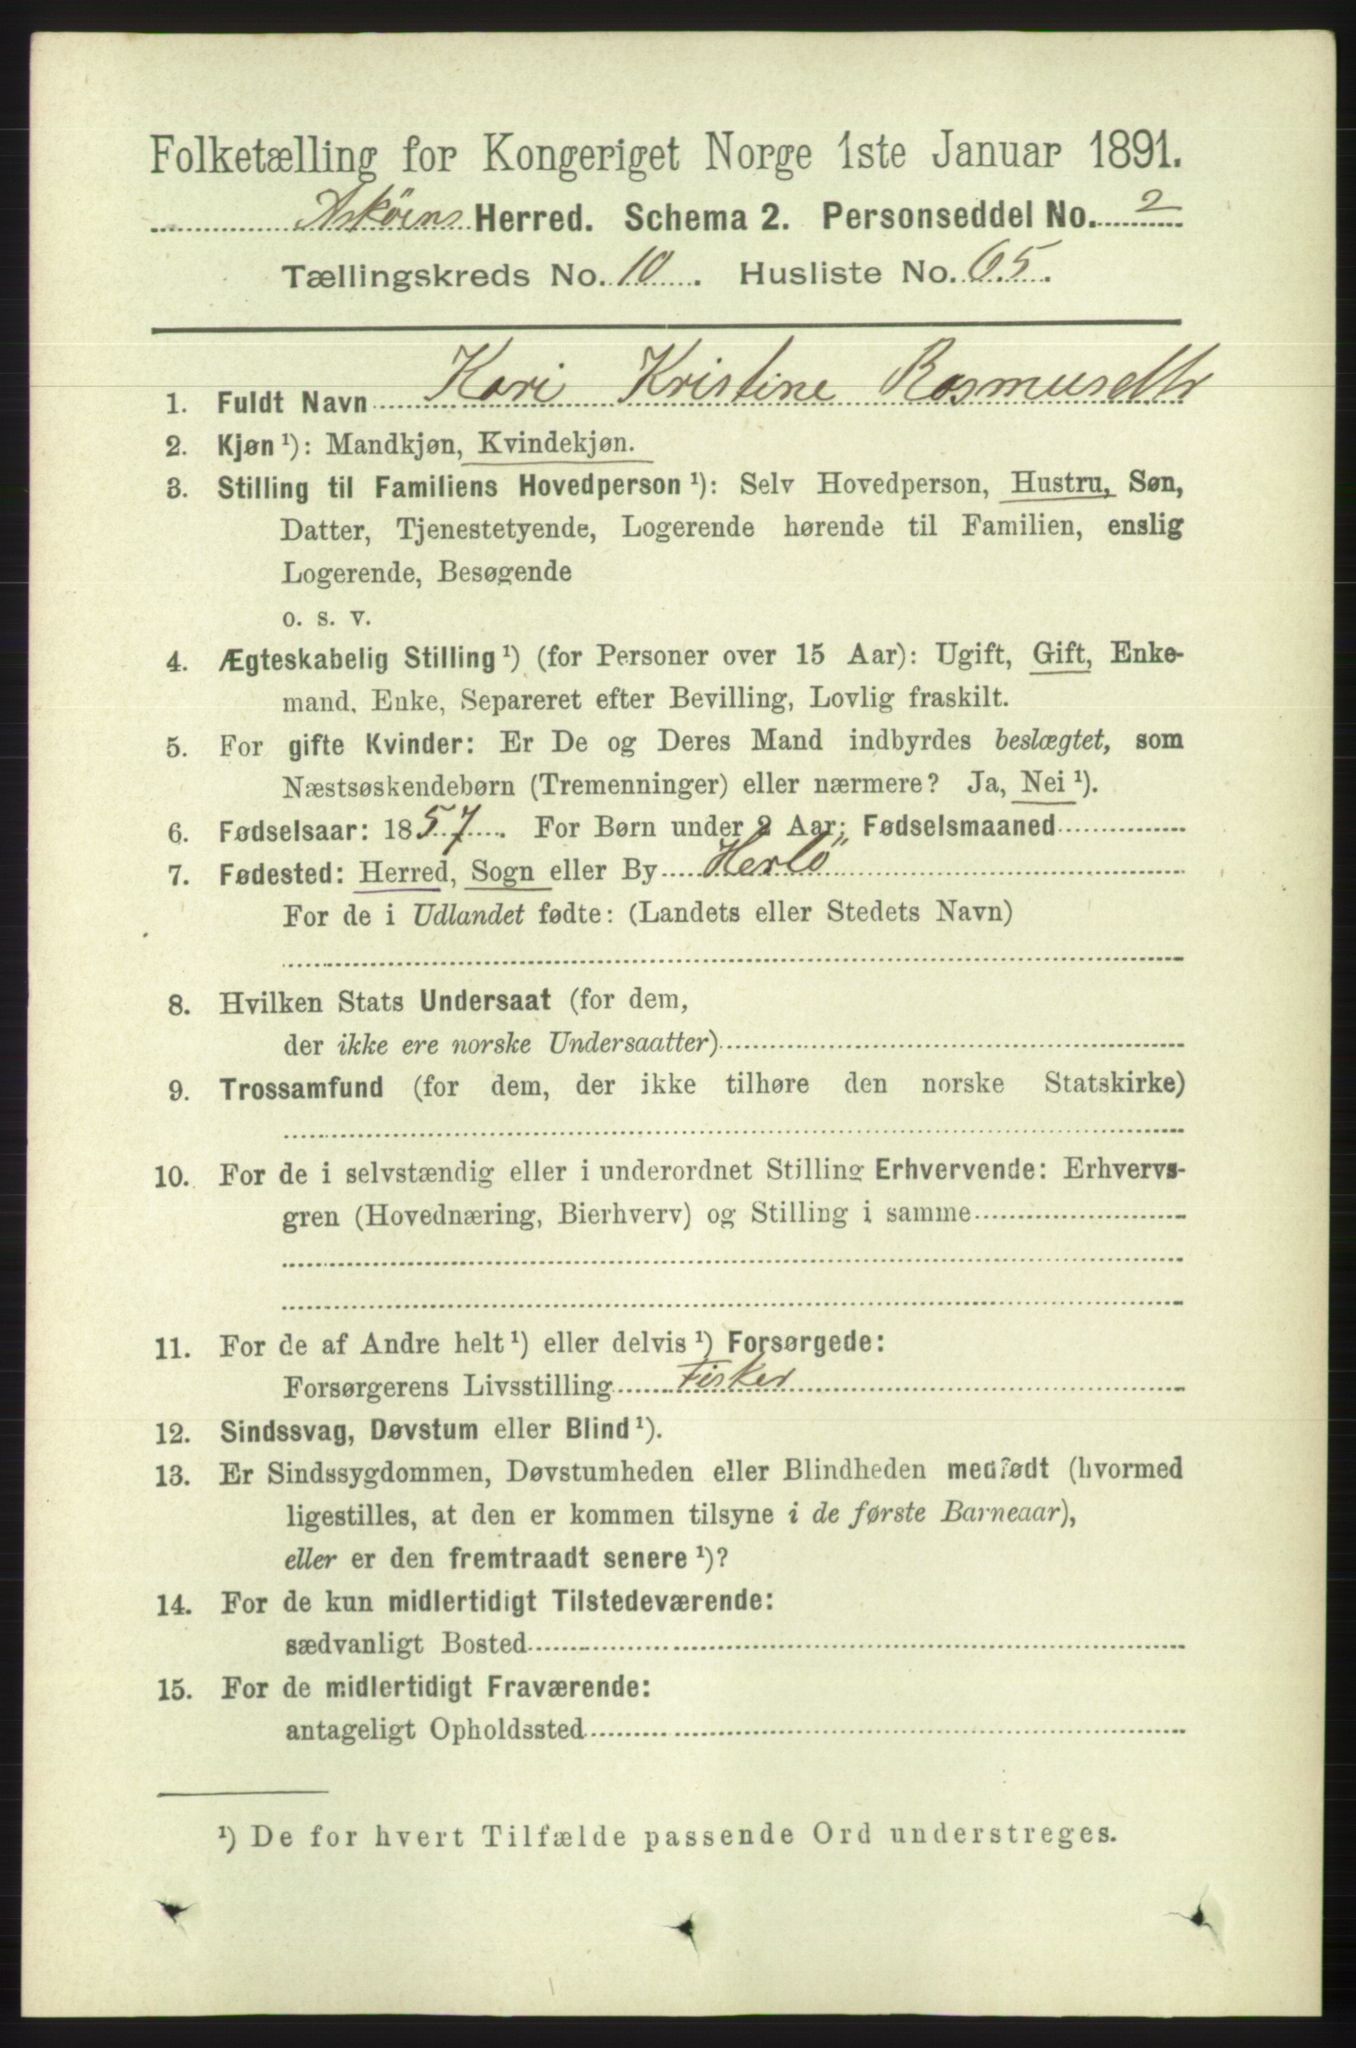 Folketælling for Kongeriget Norge 1ste Januar 1891.
Askøens Herred. Schema 2. Personseddel No. 2
Tællingskreds No. 10. Husliste No. 65.
1. Fuldt Navn Kari Kristine Rasmusdtr
2. Kjøn ¹): Mandkjøn, Kvindekjøn.
3. Stilling til Familiens Hovedperson ¹): Selv Hovedperson, Hustru, Søn,
Datter, Tjenestetyende, Logerende hørende til Familien, enslig
Logerende, Besøgende
o. s. v.
4. Ægteskabelig Stilling ¹) (for Personer over 15 Aar): Ugift, Gift, Enke-
mand, Enke, Separeret efter Bevilling, Lovlig fraskilt.
5. For gifte Kvinder: Er De og Deres Mand indbyrdes beslægtet, som
Næstsøskendebørn (Tremenninger) eller nærmere? Ja, Nei ¹).
6. Fødselsaar: 1857. For Børn under 2 Aar: Fødselsmaaned
7. Fødested: Herred, Sogn eller By Herlö
For de i Udlandet fødte: (Landets eller Stedets Navn)
8. Hvilken Stats Undersaat (for dem,
der ikke ere norske Undersaatter)
9. Trossamfund (for dem, der ikke tilhøre den norske Statskirke)
10. For de i selvstændig eller i underordnet Stilling Erhvervende: Erhvervs-
gren (Hovednæring, Bierhverv) og Stilling i samme
11. For de af Andre helt ¹) eller delvis ¹) Forsørgede:
Forsørgerens Livsstilling Fisker
12. Sindssvag, Døvstum eller Blind ¹).
13. Er Sindssygdommen, Døvstumheden eller Blindheden medfødt (hvormed
ligestilles, at den er kommen tilsyne i de første Barneaar),
eller er den fremtraadt senere ¹)?
14. For de kun midlertidigt Tilstedeværende:
sædvanligt Bosted
15. For de midlertidigt Fraværende:
antageligt Opholdssted
¹) De for hvert Tilfælde passende Ord understreges.